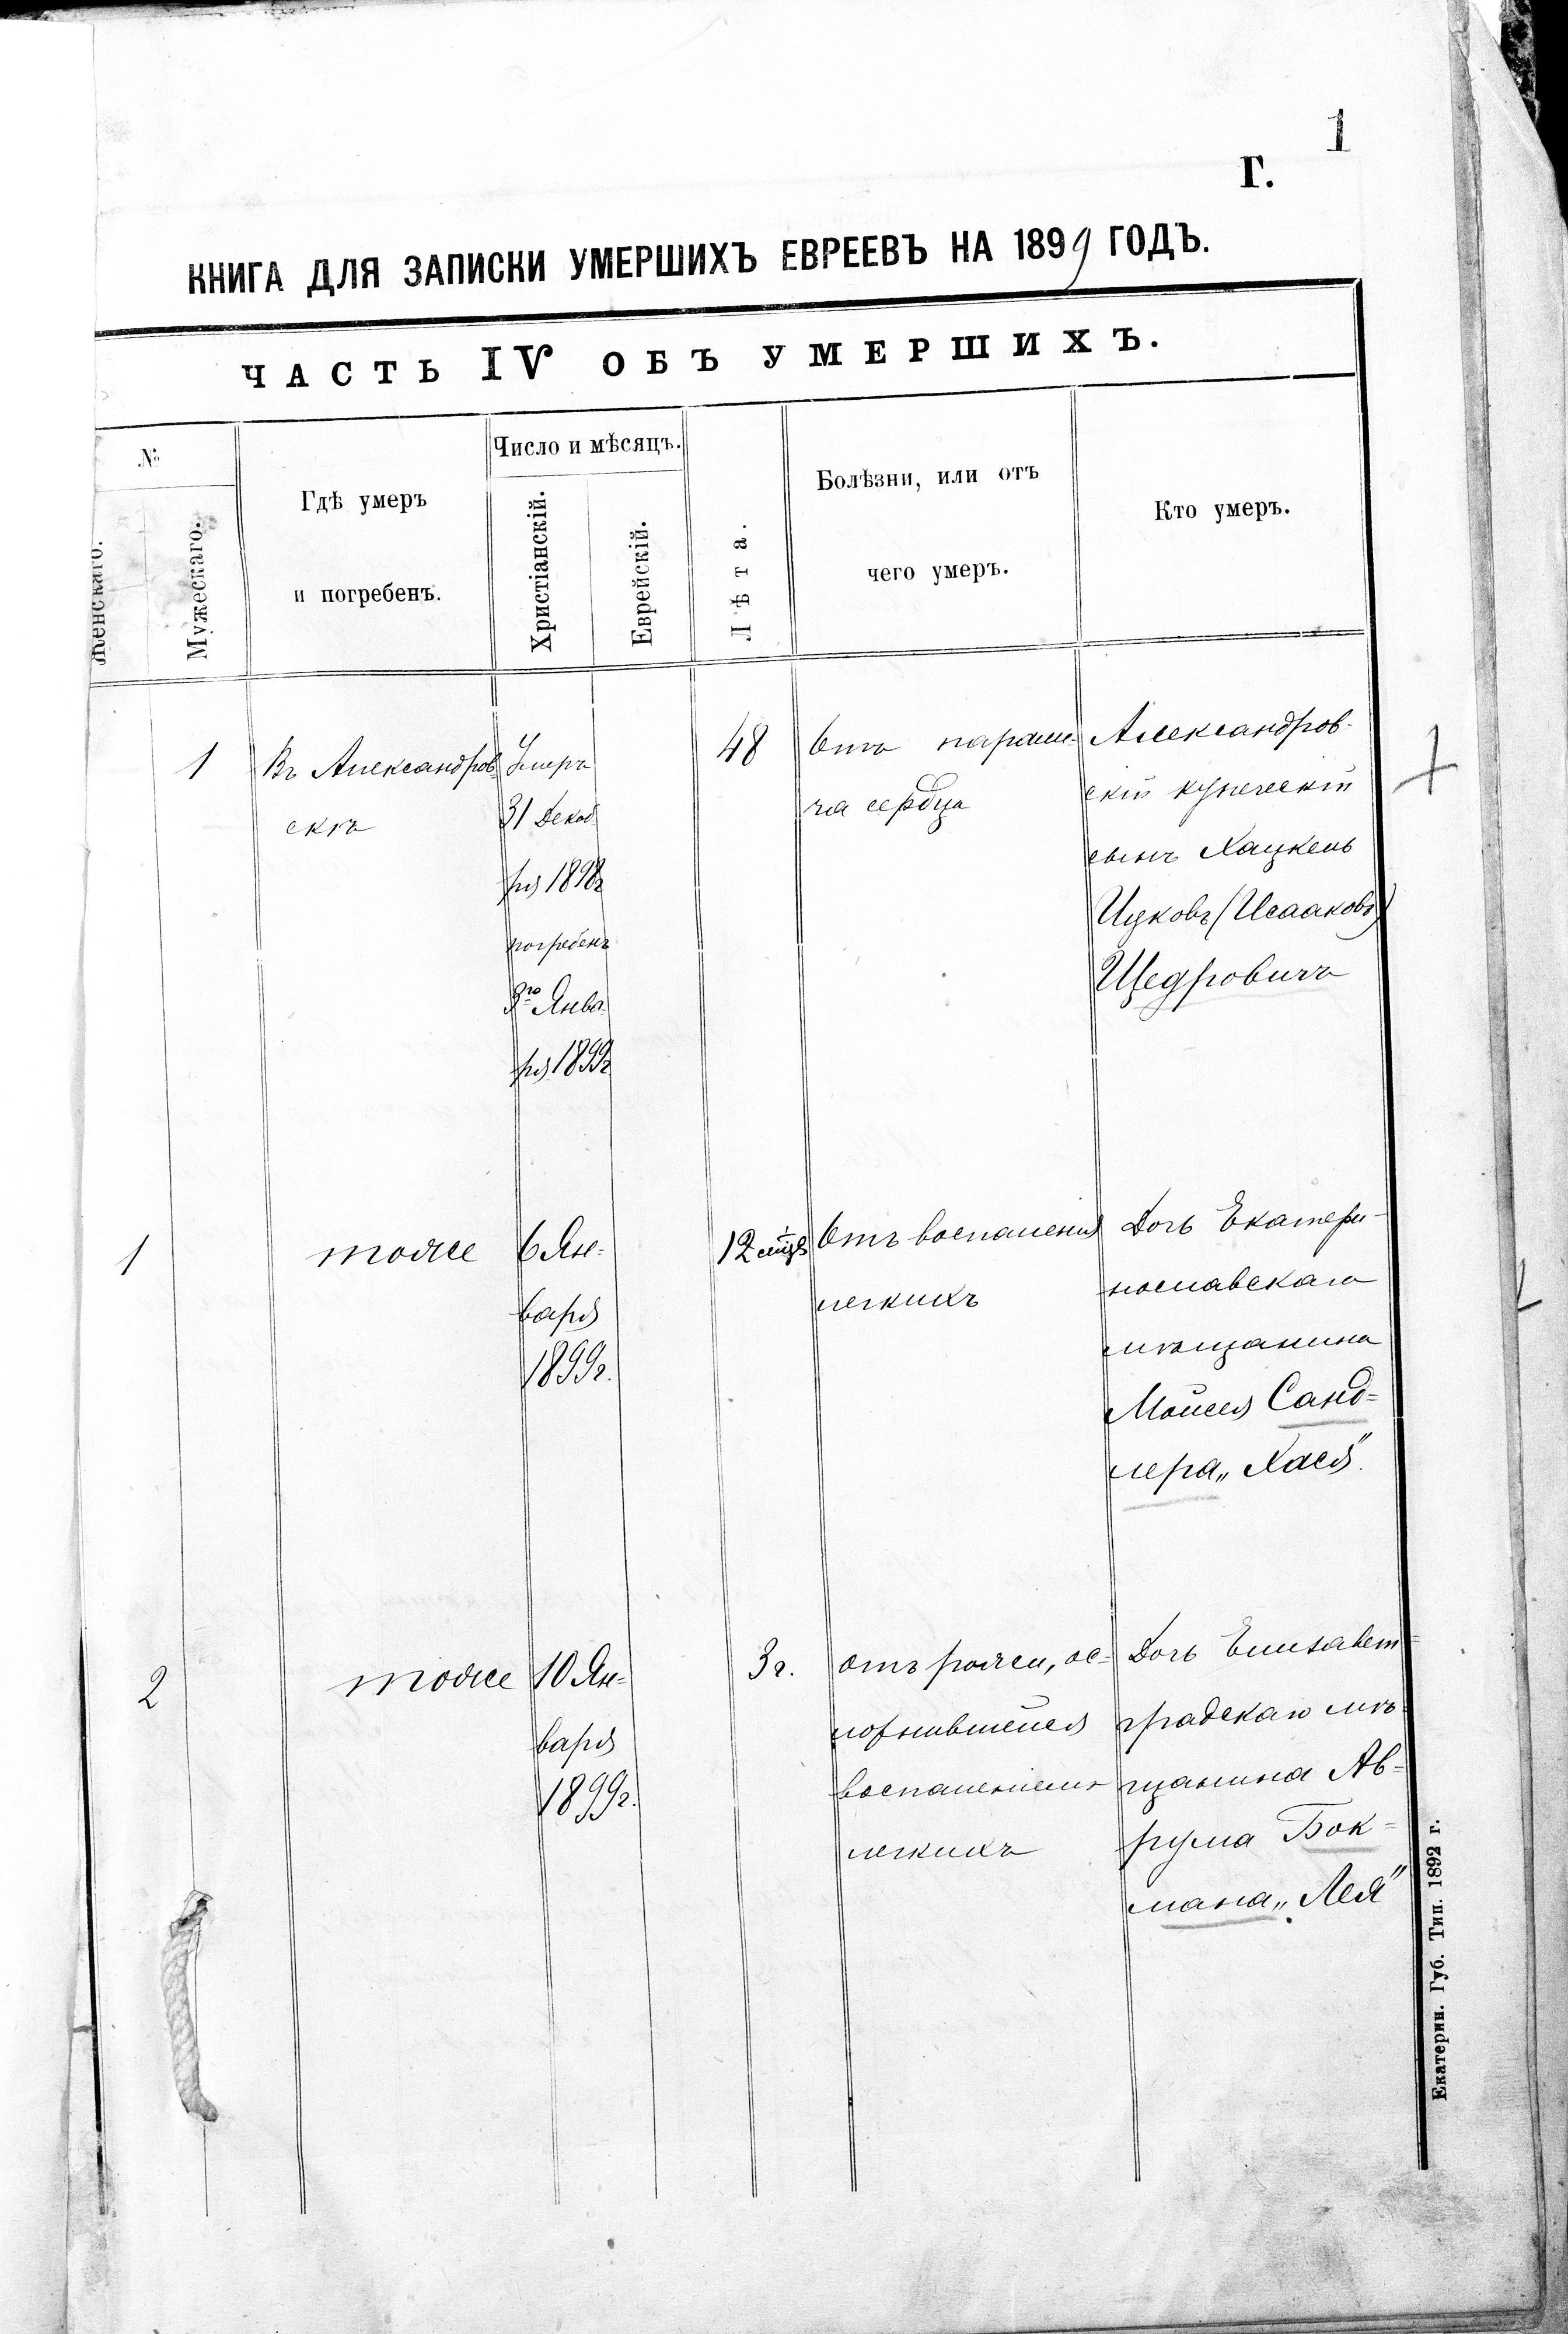 1
Г.
КНИГА ДЛЯ ЗАПИСКИ УМЕРШИХЪ ЕВРЕЕВЪ НА 1899 ГОДЪ.
ЧАСТЬ IV ОБЪ УМЕРШИХЪ.
№
Женскаго.
Мужескаго.
Гдѣ умеръ
и погребенъ.
Число и мѣсяцъ.
Христіанскій.
Еврейскій.
Лѣта.
Болѣзни, или отъ
чего умеръ.
Кто умеръ.
1
Въ Александров-
скѣ
Умеръ
31 Декаб
ря 1898г
погребенъ
3го Янва-
ря 1899г
48
Отъ парали-
ча сердца
Александров-
скій купеческій
сынъ Хацкель
Ицковъ (Исааковъ)
Щедровичъ
1
тоже
6 Ян-
варя
1899г.
12 мѣц
Отъ воспаленія
легкихъ
Дочь Екатери-
нославскаго
мѣщанина
Моисея Санд-
лера „Хася".
2
тоже
10 Ян-
варя
1899г.
3г.
отъ рожи, ос-
ложнившейся
воспаленіемъ
легкихъ
Дочь Елисавет-
градскаго мѣ-
щанина Ав-
рума Бок-
мана „Лея"
Екатерин. Губ. Тип. 1892 г.